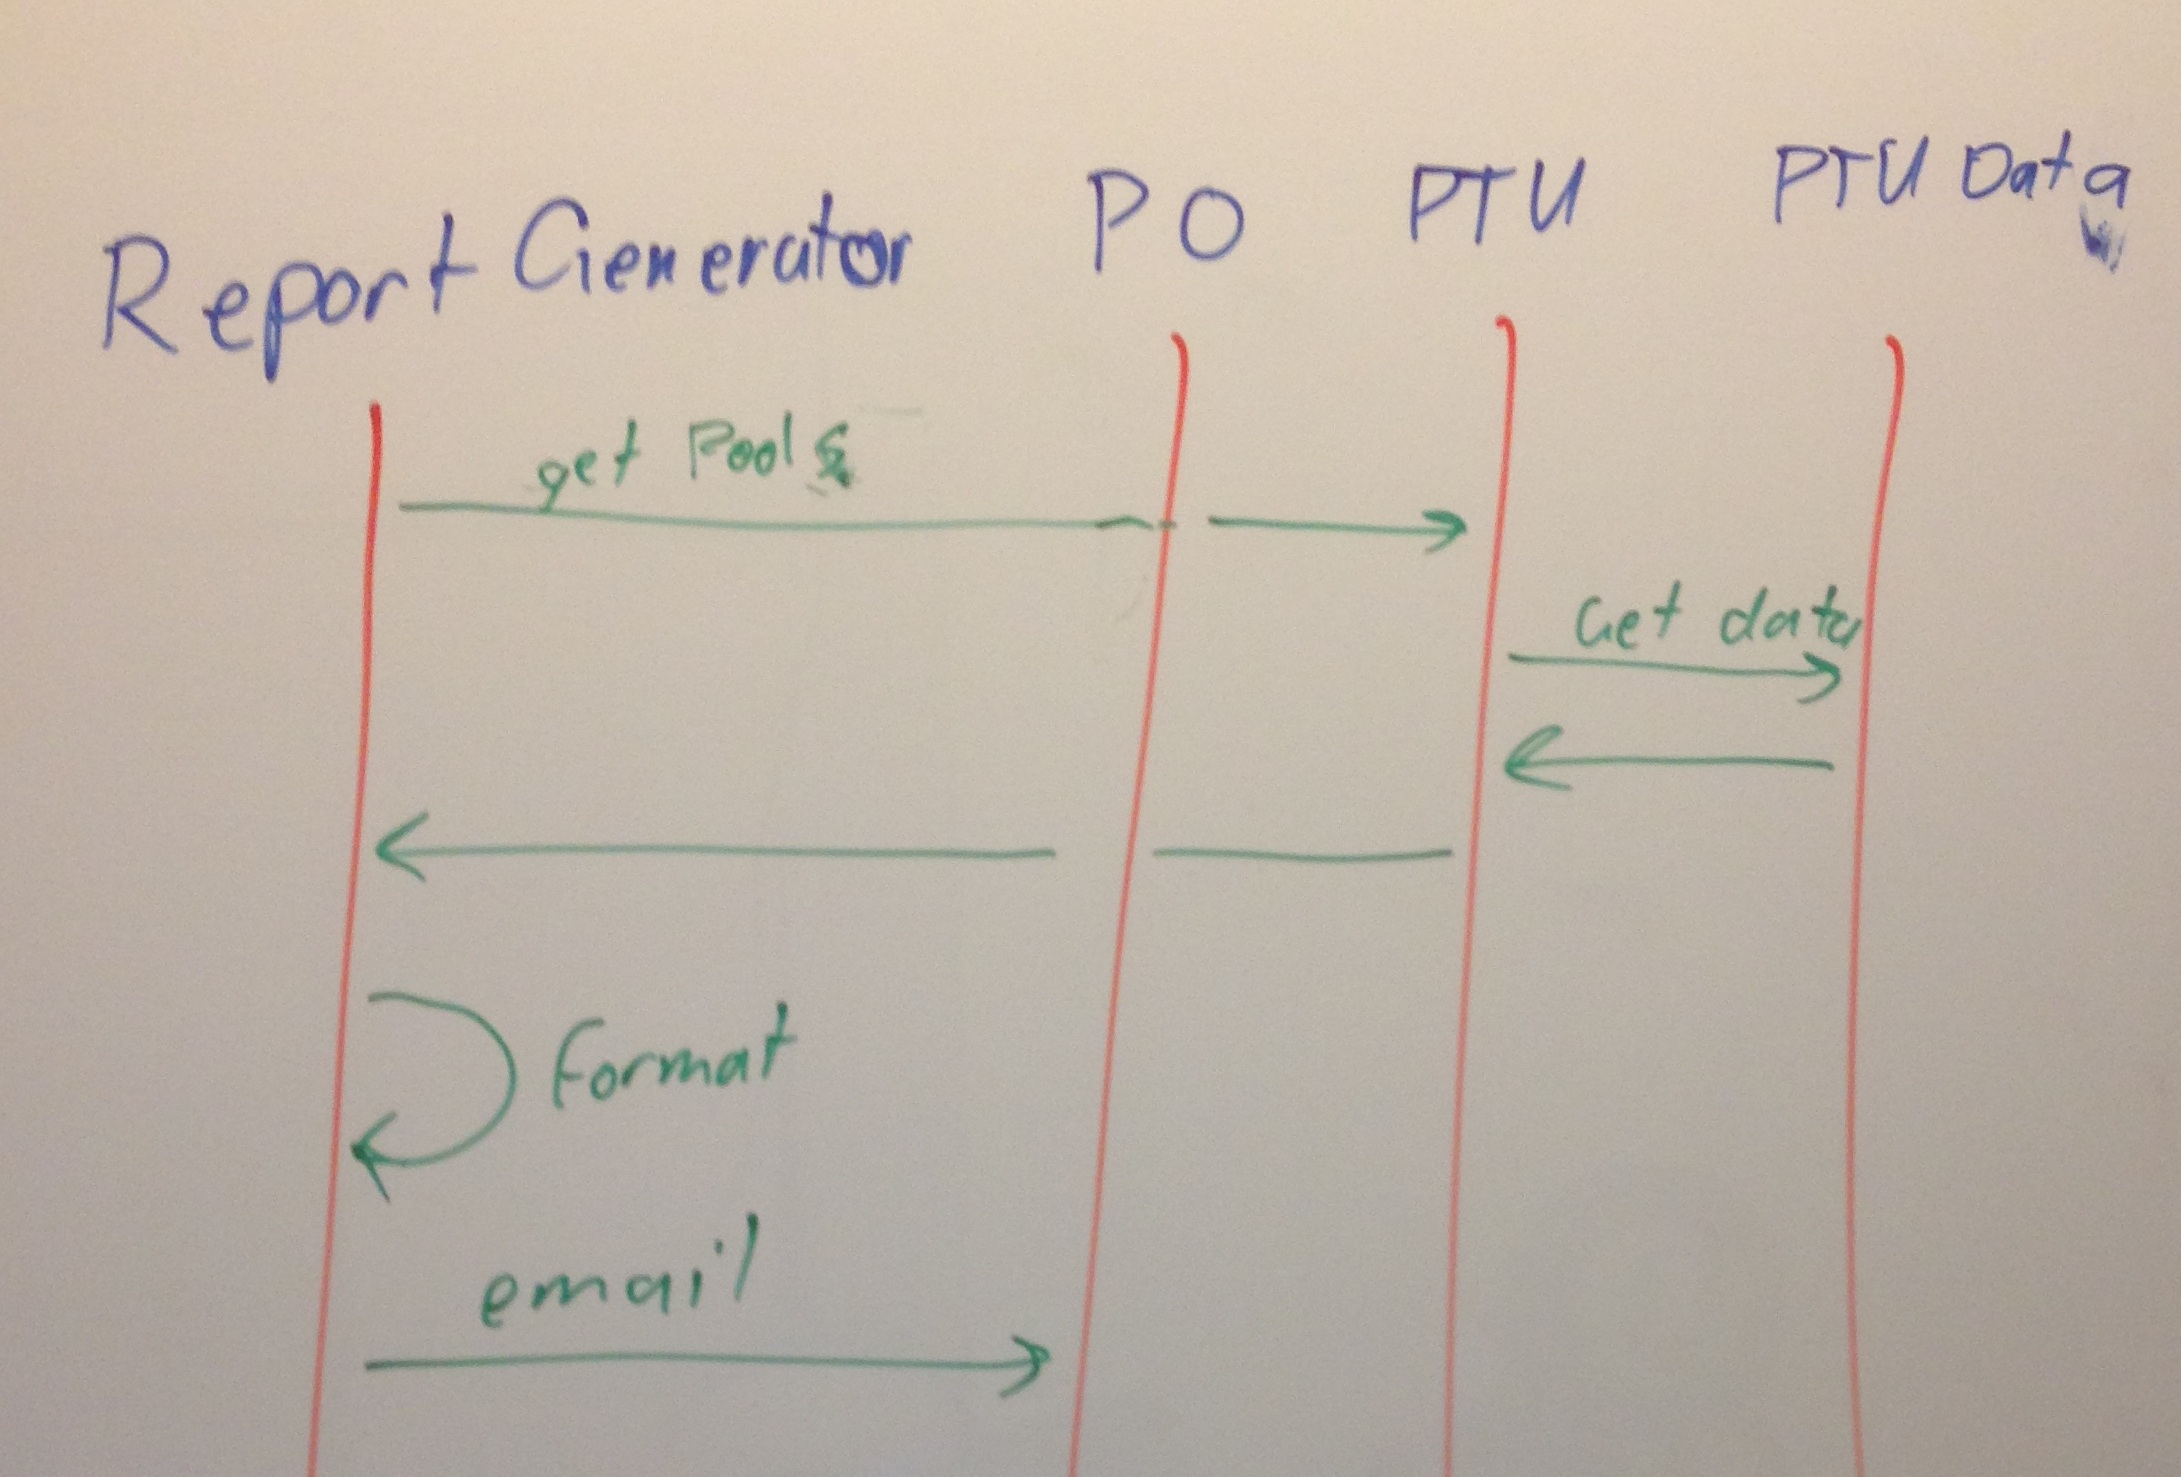 Report Generator PO PTU PTU Data
get Pools
Get data
Format
email